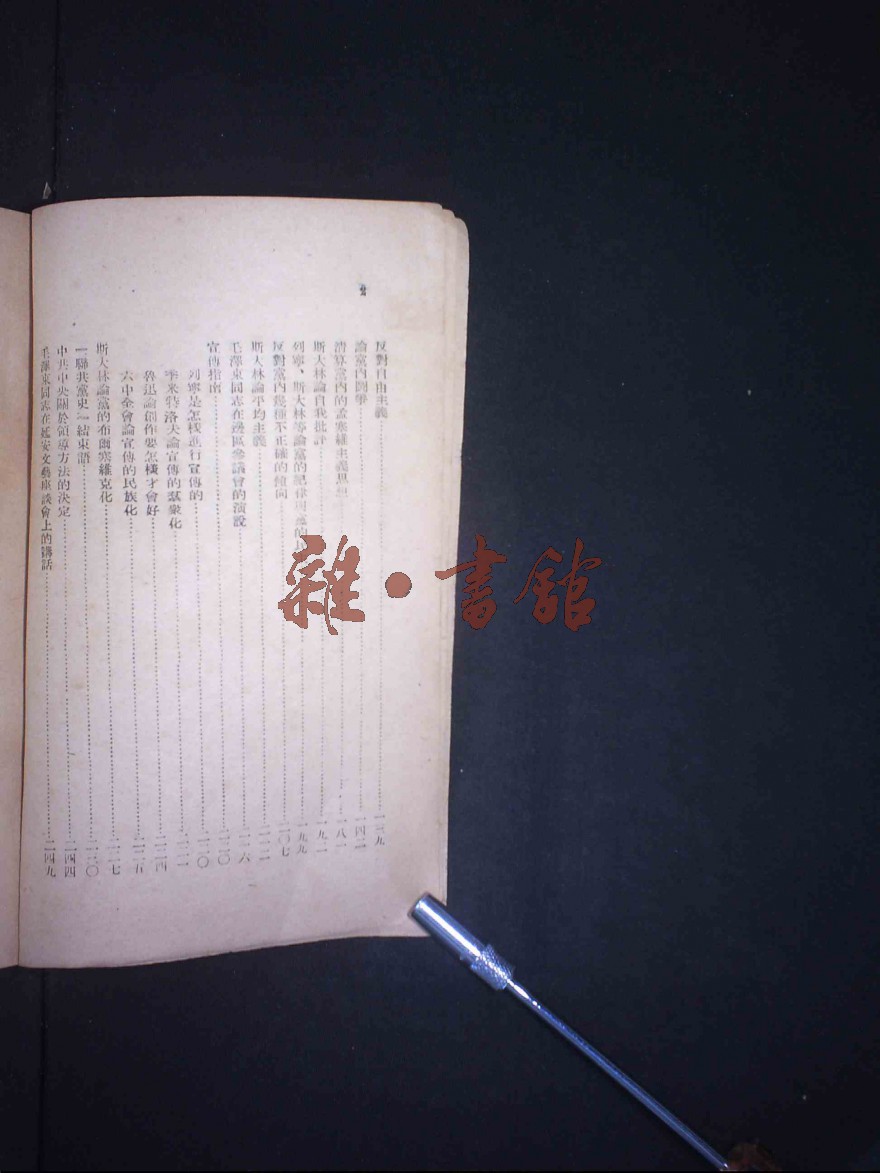 2
反對自由主義……一三九
論黨內鬥爭……一四二
清算黨內的孟塞維主義思想……一八一
斯大林論自我批評……一九二
列寧、斯大林等論黨的紀律與黨的……一九九
反對黨內幾種不正確的傾向……二〇七
斯大林論平均主義……二一二
毛澤東同志在邊區參議會的演說……二一六
宣傳指南……二二〇
列寧是怎樣進行宣傳的……二二〇
季米特洛夫論宣傳的羣衆化……二二二
魯迅論創作要怎樣才會好……二二四
六中全會論宣傳的民族化……二二五
斯大林論黨的布爾塞維克化……二二七
「聯共黨史」結束語……二三〇
中共中央關於領導方法的決定……二四四
毛澤東同志在延安文藝座談會上的講話……二四九
雜·書館